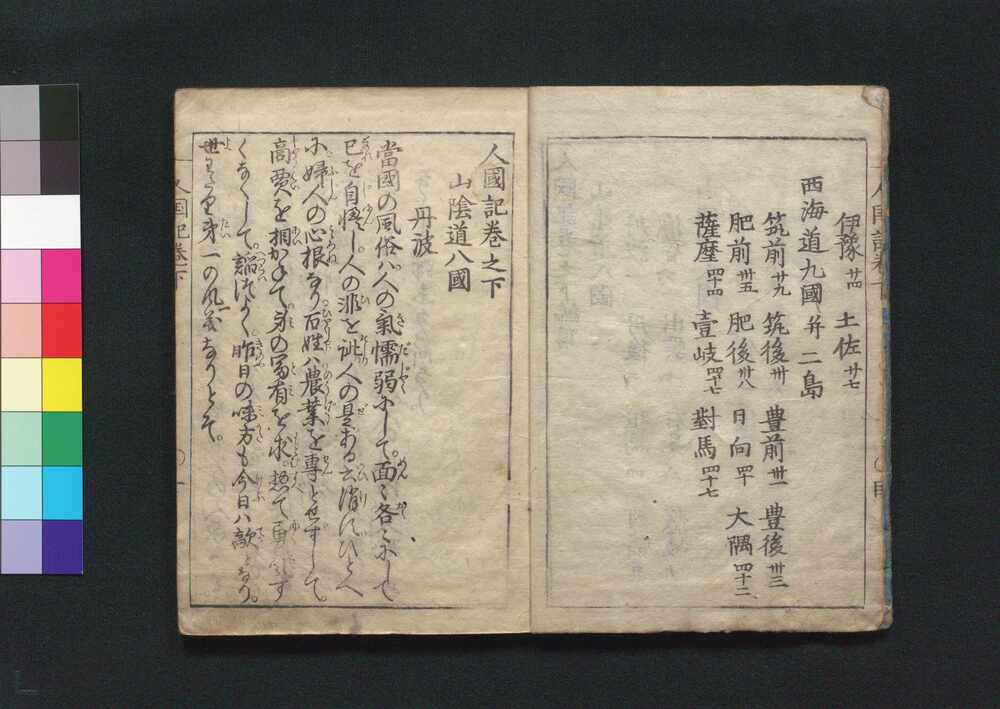 伊豫 廿四 土佐 廿七
西海道九國 并 二島
筑前 廿九 筑後 卅 豊前 卅一 豊後 卅三
肥前 卅五 肥後 卅八 日向 四十 大隅 四十二
薩摩 四十四 壹岐 四十七 對馬 四十七
人國記巻之下
山陰道八國
丹波
當國の風俗ハ人の氣懦弱にして。面々各々にして
己を自慢し人の非を訕人の是ある云消し。ひとへ
に婦人の心根なり百姓ハ農業を専とせずして。
高貴を掴かすて身の冨有を求。惣て
くなくして。謟つよく昨日の味方も今日ハ敵となり。
第一の風義なりとそ。
人国記巻下